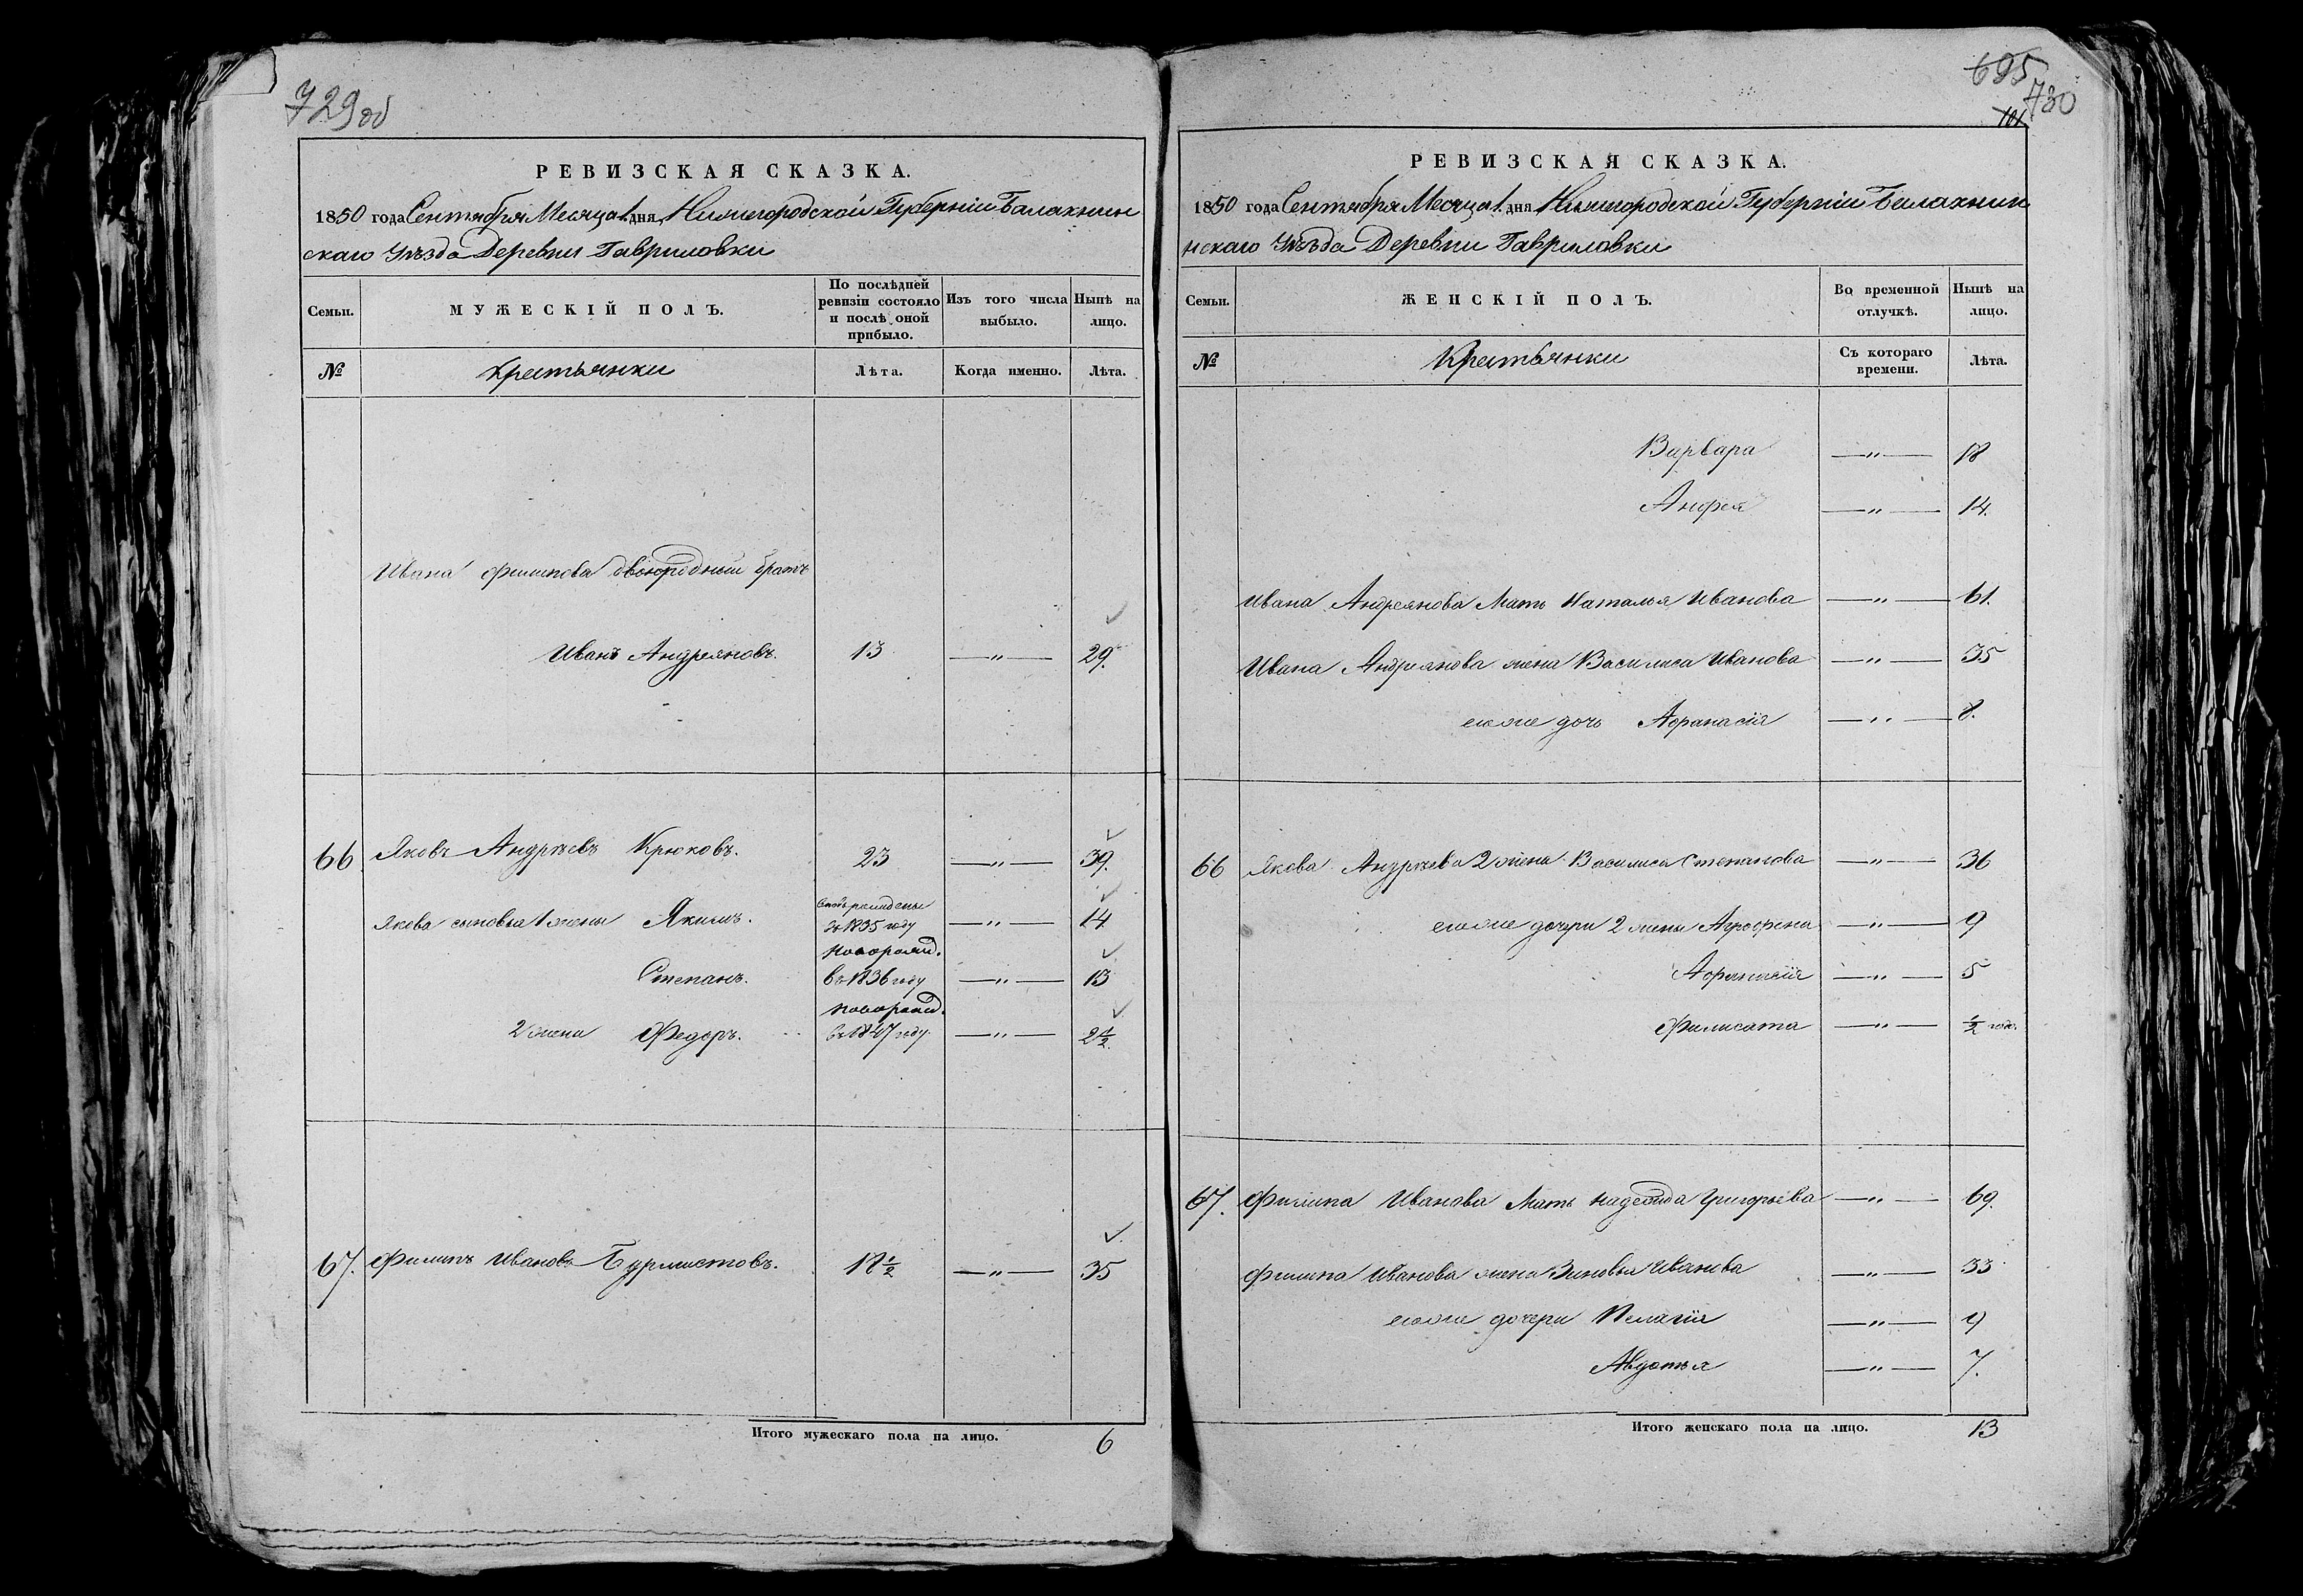 729 об
РЕВИЗСКАЯ СКАЗКА.
1850 года Сентября Месяца 1 дня, Нижегородской Губерніи Балахнин
скаго Уѣзда Деревни Гавриловки
Семьи.
МУЖЕСКІЙ ПОЛЪ.
По послѣдней ревизіи состояло и послѣ оной прибыло.
Изъ того числа выбыло.
Нынѣ на лицо.
№
Крестьянки
Лѣта.
Когда именно.
Лѣта.
Ивана Филипова двоюродный братъ
Иванъ Андреяновъ. 13 —„— 29.
66 Яковъ Андрѣевъ Крюковъ. 23 —„— 39.
Якова сыновья 1 жены Якимъ. въ 1835 году —„— 14
Степанъ. новорожд. въ 1836 году —„— 13
2 жены Федоръ. новорожд. въ 1847 году. —„— 2 1/2.
67. Филипъ Ивановъ Бурмистовъ. 18 1/2 —„— 35
Итого мужескаго пола на лицо. 6
695
730
101
РЕВИЗСКАЯ СКАЗКА.
1850 года Сентября Месяца 1 дня Нижегородской Губерніи Балахнин
нскаго Уѣзда Деревни Гавриловки
Семьи.
ЖЕНСКІЙ ПОЛЪ.
Во временной отлучкѣ.
Нынѣ на лицо.
№
Крестьянки
Съ котораго времени.
Лѣта.
Варвара —„— 18
Анфея —„— 14.
Ивана Андреянова Мать Наталья Иванова —„— 61.
Ивана Андреянова жена Василиса Иванова —„— 35
ево же дочь Афанасія —„— 8.
66 Якова Андрѣева 2 жена Василиса Степанова —„— 36
ево же дочери 2 жены Агрофена —„— 9
Афанасія —„— 5
Филисата —„— 1/2 года.
67. Филипа Иванова Мать Надежда Григорьева —„— 69.
Филипа Иванова жена Зиновья Иванова —„— 33
ево же дочери Пелагія —„— 9
Авдотья —„— 7.
Итого женскаго пола на лицо. 13